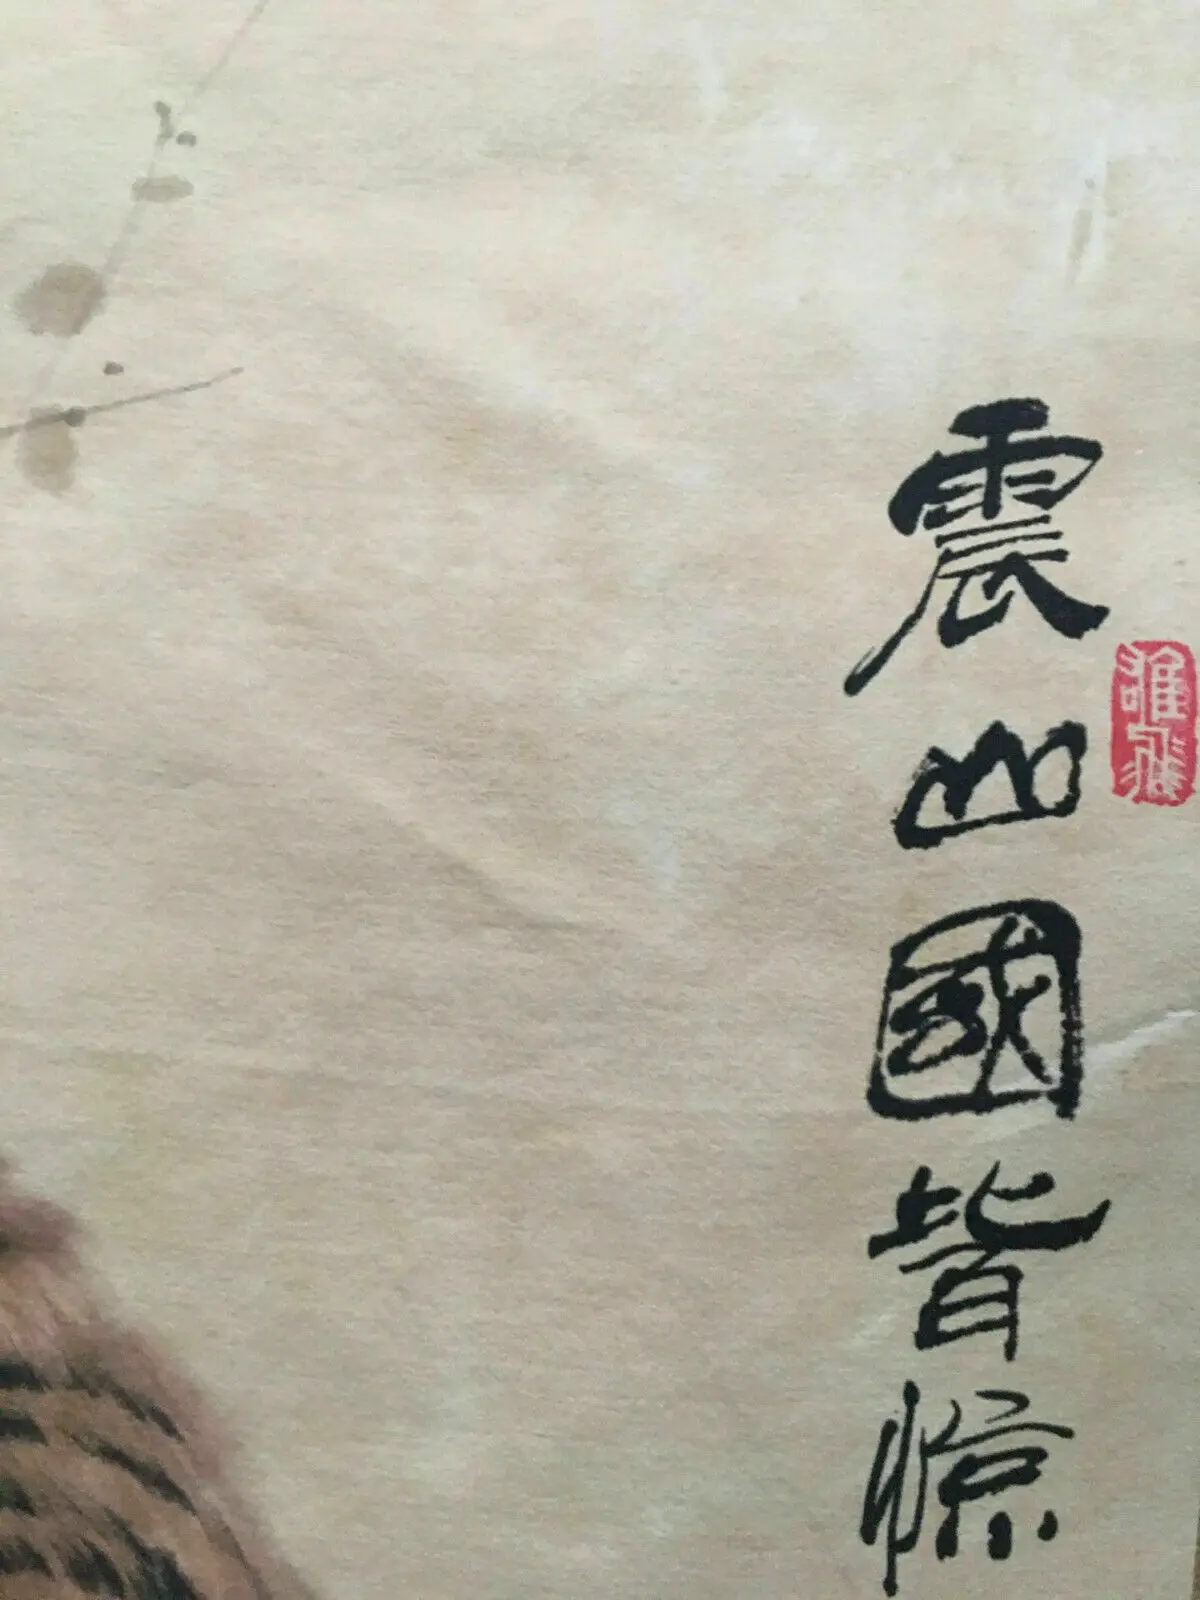 震山國皆惊